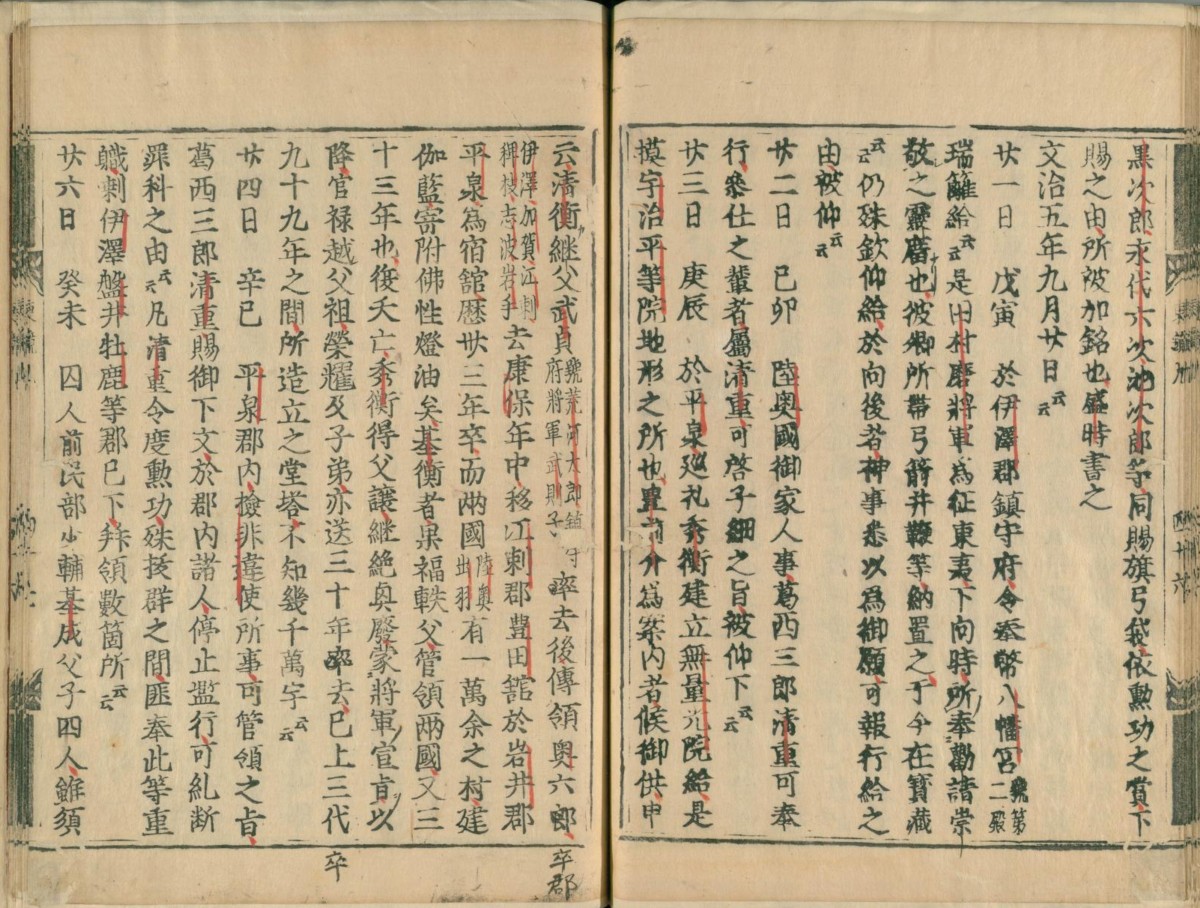 黒次郎永代六次池次郎等同賜旗弓袋依勲功之賞下
賜之由所被加銘也盛時書之
文治五年九月廿日云云
廿一日　戊寅　於伊澤郡鎮守府令奉幣八幡宮号第二殿
瑞籬給云云是田村麿將軍為征東夷下向時所奉勸請崇
敬之靈廟也彼卿所帶弓箭并鞭等納置之于今在寳藏
云云仍殊欽仰給於向後者神事悉以為御願可執行給之
由被仰云云
廿二日　己卯　陸奥國御家人事葛西三郎清重可奉
行參仕之輩者属清重可啓子細之旨被仰下云云
廿三日　庚辰　於平泉廵礼秀衡建立無量光院給是
摸宇治平等院地形之所也豊前介為案内者候御供申
云清衡継父武貞号荒河太郎鎮守府將軍武則子卒去後傳領奥六郎
伊澤加賀江刺稗枝志波岩手去康保年中移江刺郡豊田舘於岩井郡
平泉為宿舘歴廿三年卒而兩國陸奥出羽有一萬余之村建
伽藍寄附佛性燈油矣基衡者果福軼父管領兩國又三
十三年也後夭亡秀衡得父譲継絶奥廢蒙將軍宣㫖以
降官禄越父祖榮耀及子弟亦送三十年卒去已上三代
九十九年之間所造立之堂塔不知幾千萬宇云云
廿四日　辛巳　平泉郡内撿非違使所事可管領之㫖
葛西三郎清重賜御下文於郡内諸人停止濫行可糺断
罪科之由云云凡清重今度勲功殊抜群之間匪奉此等重
軄剰伊澤盤井牡鹿等郡已下拜領數箇所云云
廿六日　癸未　囚人前民部少輔基成父子四人雖須
卒郡
卒